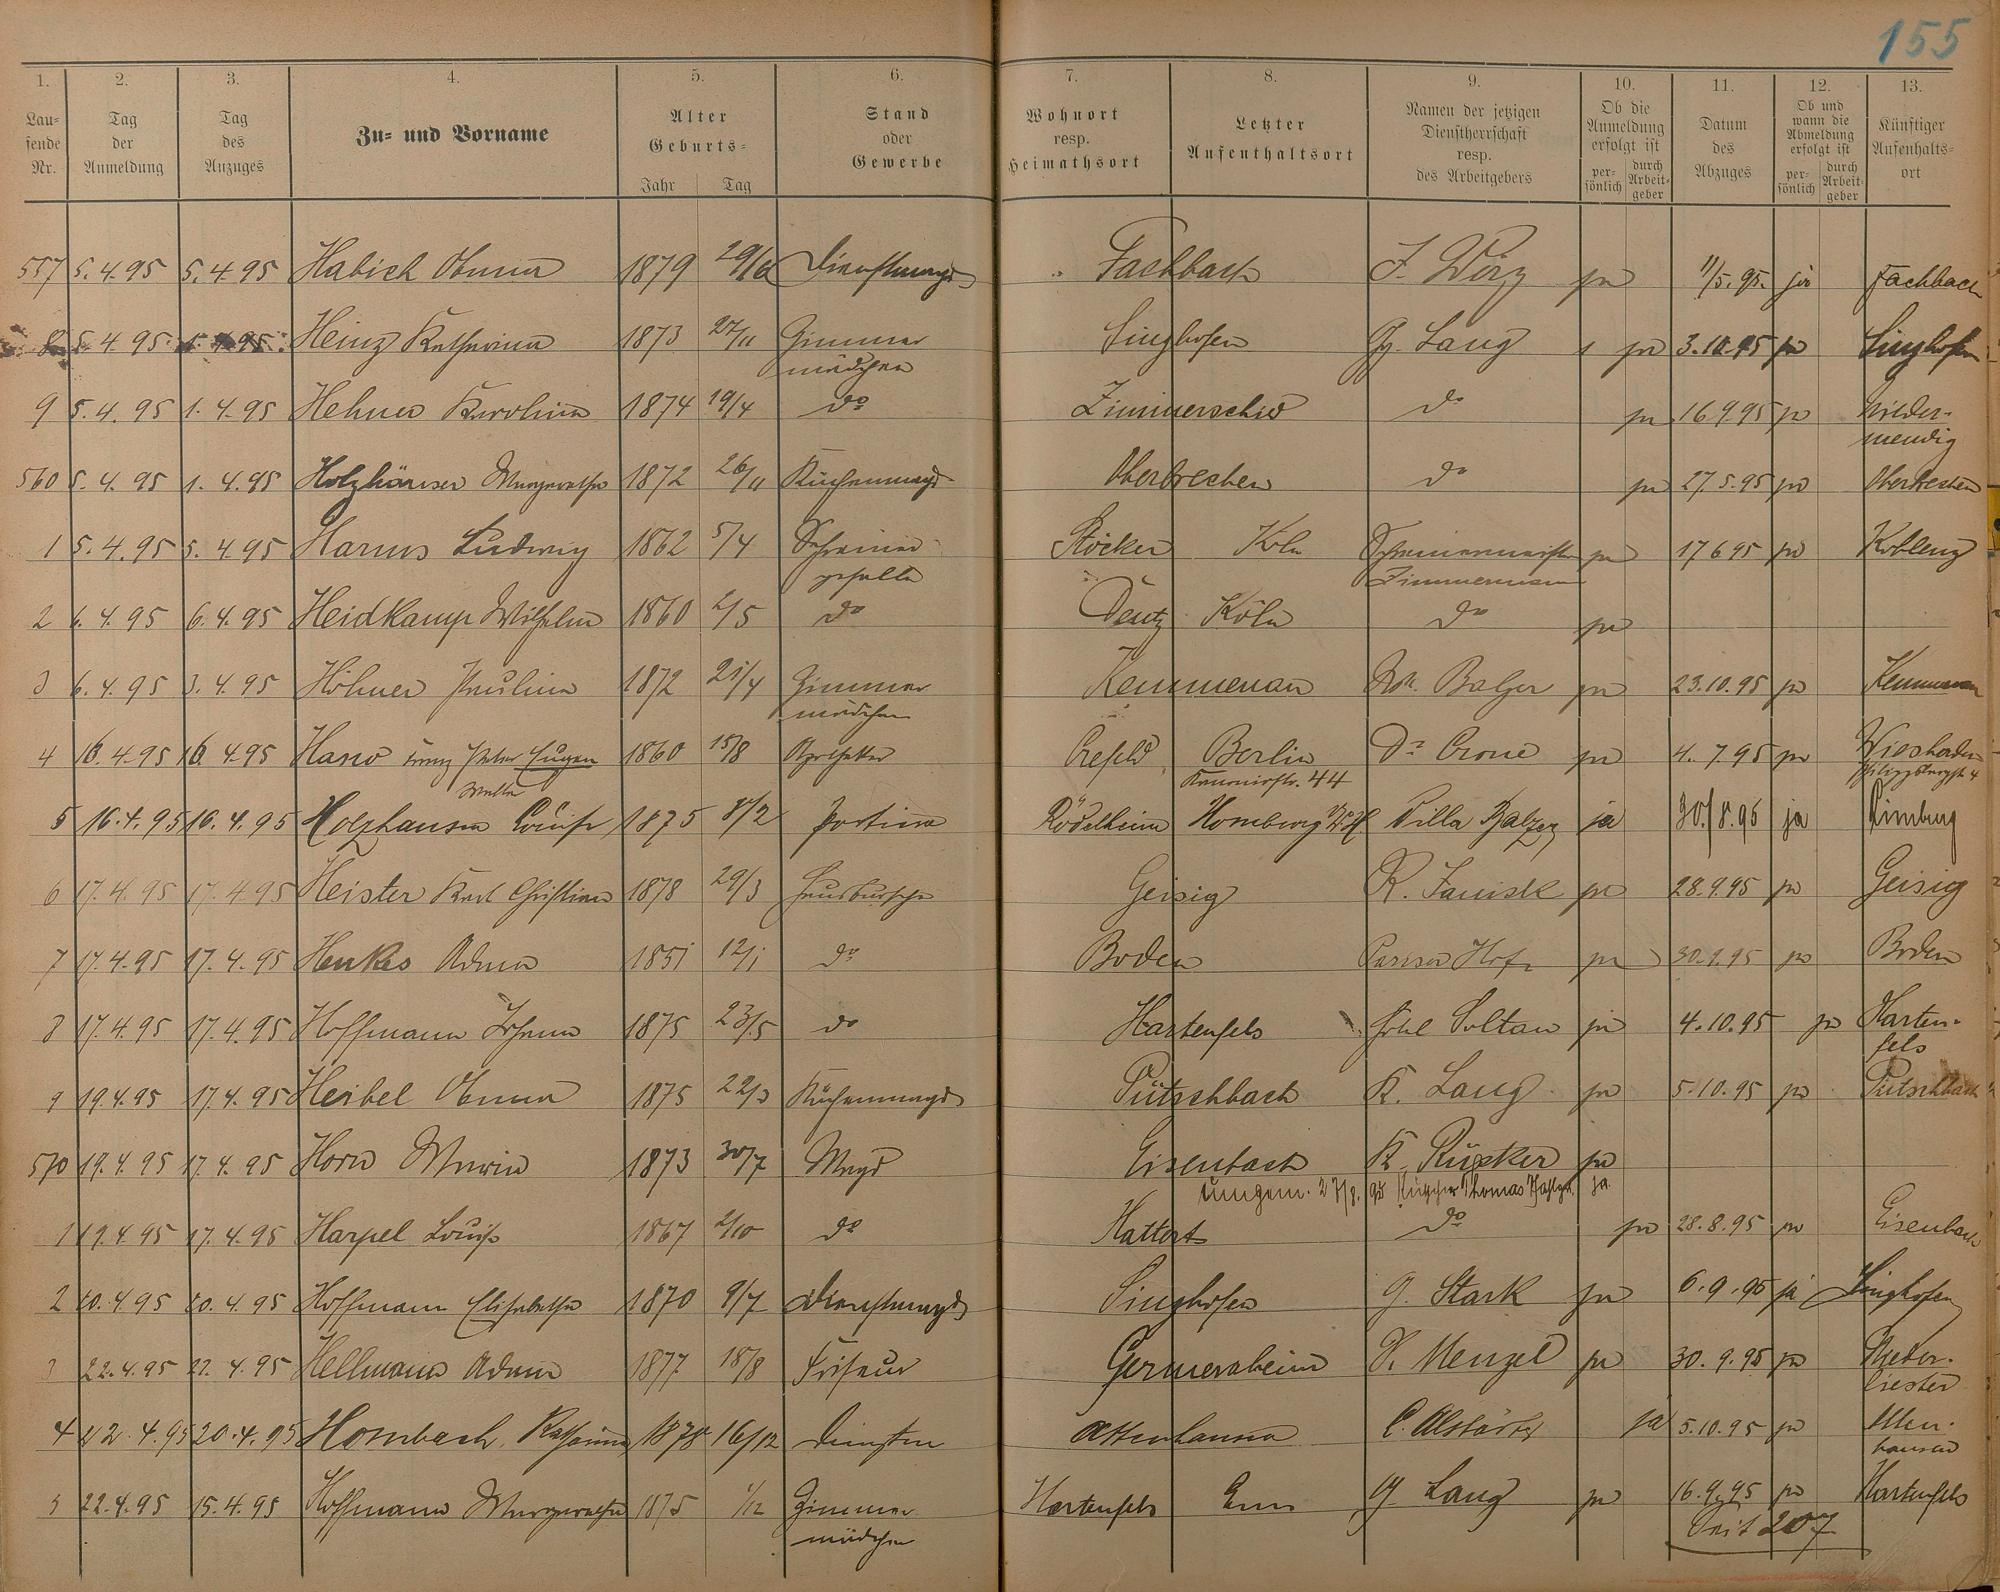 155
1. 2. 3. 4. 5. 6. 7. 8. 9. 10. 11. 12. 13.
Laufende Nr. Tag der Anmeldung Tag des Anzuges Zu- und Vorname Alter Geburts- Jahr Tag Stand oder Gewerbe Wohnort resp. Heimathsort Letzter Aufenthaltsort Namen der jetzigen Dienstherrschaft resp. des Arbeitgebers Ob die Anmeldung erfolgt ist persönlich durch Arbeitgeber Datum des Abzuges Ob und wann die Abmeldung erfolgt ist persönlich durch Arbeitgeber Künftiger Aufenthaltsort
557 5.4.95 5.4.95 Habich Anna 1879 29/6 Dienstmagd Fachbach J. Wörz ja 11/5.95. ja Fachbach
8 5.4.95 1.4.95 Heinz Katharina 1873 27/11 Zimmer Singhofen Gg. Lang ja 3.10.95 ja Singhofen
mädchen
9 5.4.95 1.4.95 Hehner Karolina 1874 19/4 do Zimmerschied do ja 16.9.95 ja Nieder-
mendig
560 5.4.95 1.4.95 Holzhäuser Margaretha 1872 26/11 Küchenmagd Oberbrechen do ja 27.5.95 ja Oberbrechen
1 5.4.95 5.4.95 Harms Ludwig 1862 5/4 Schreiner Stöcken Köln Schreinermeister ja 17.6.95 ja Koblenz
geselle Zimmermann
2 6.4.95 6.4.95 Heidkamp Wilhelm 1860 2/5 do Deutz Köln do ja
3 6.4.95 3.4.95 Höhner Paulina 1872 21/4 Zimmer Kemmenau Balzer ja 23.10.95 ja Kemmenau
mädchen
4 16.4.95 16.4.95 Peter Eugen 1860 15/8 Apotheker Crefeld Berlin Dr Crone ja 4.7.95 ja Wiesbaden
Walter Kanonierstr. 44 Philippsbergstr 4
5 16.4.95 16.4.95 Holzhausen Louise 1875 8/2 Rödelheim Homburg Villa Balzer ja 30/8.95 ja Limburg
6 17.4.95 17.4.95 Heister Karl Christian 1878 29/3 Hausbursche Geisig R. ja 28.9.95 ja Geisig
7 17.4.95 17.4.95 Henkes Adam 1851 12/1 do Boden Pariser Hof ja 30.9.95 ja Boden
8 17.4.95 17.4.95 Hoffmann Johann 1875 23/5 do Hartenfels Soltau ja 4.10.95 ja Harten-
fels
9 19.4.95 17.4.95 Heibel Anna 1875 22/3 Küchenmagd Pütschbach K. Lang ja 5.10.95 ja Pütschbach
570 19.4.95 17.4.95 Horn Maria 1873 30/7 Magd Eisenbach K. Rücker ja
umgem. 27/8.95 Thomas ja
1 19.4.95 17.4.95 Harpel Louise 1867 2/10 do Hattert do ja 28.8.95 ja Eisenbach
2 20.4.95 20.4.95 Hoffmann Elisabetha 1870 9/7 Dienstmagd Singhofen G. Stark ja 6.9.95 ja Singhofen
3 22.4.95 22.4.95 Hellmann Adam 1877 18/8 Friseur Germersheim V. Menzel ja 30.9.95 ja
4 22.4.95 20.4.95 Hombach Katharina 1878 16/12 Attenhausen C. ja 5.10.95 ja Atten-
hausen
5 22.4.95 15.4.95 Hoffmann Margaretha 1875 1/12 Zimmer Hartenfels Ems G. Lang ja 16.9.95 ja Hartenfels
mädchen Seit 207